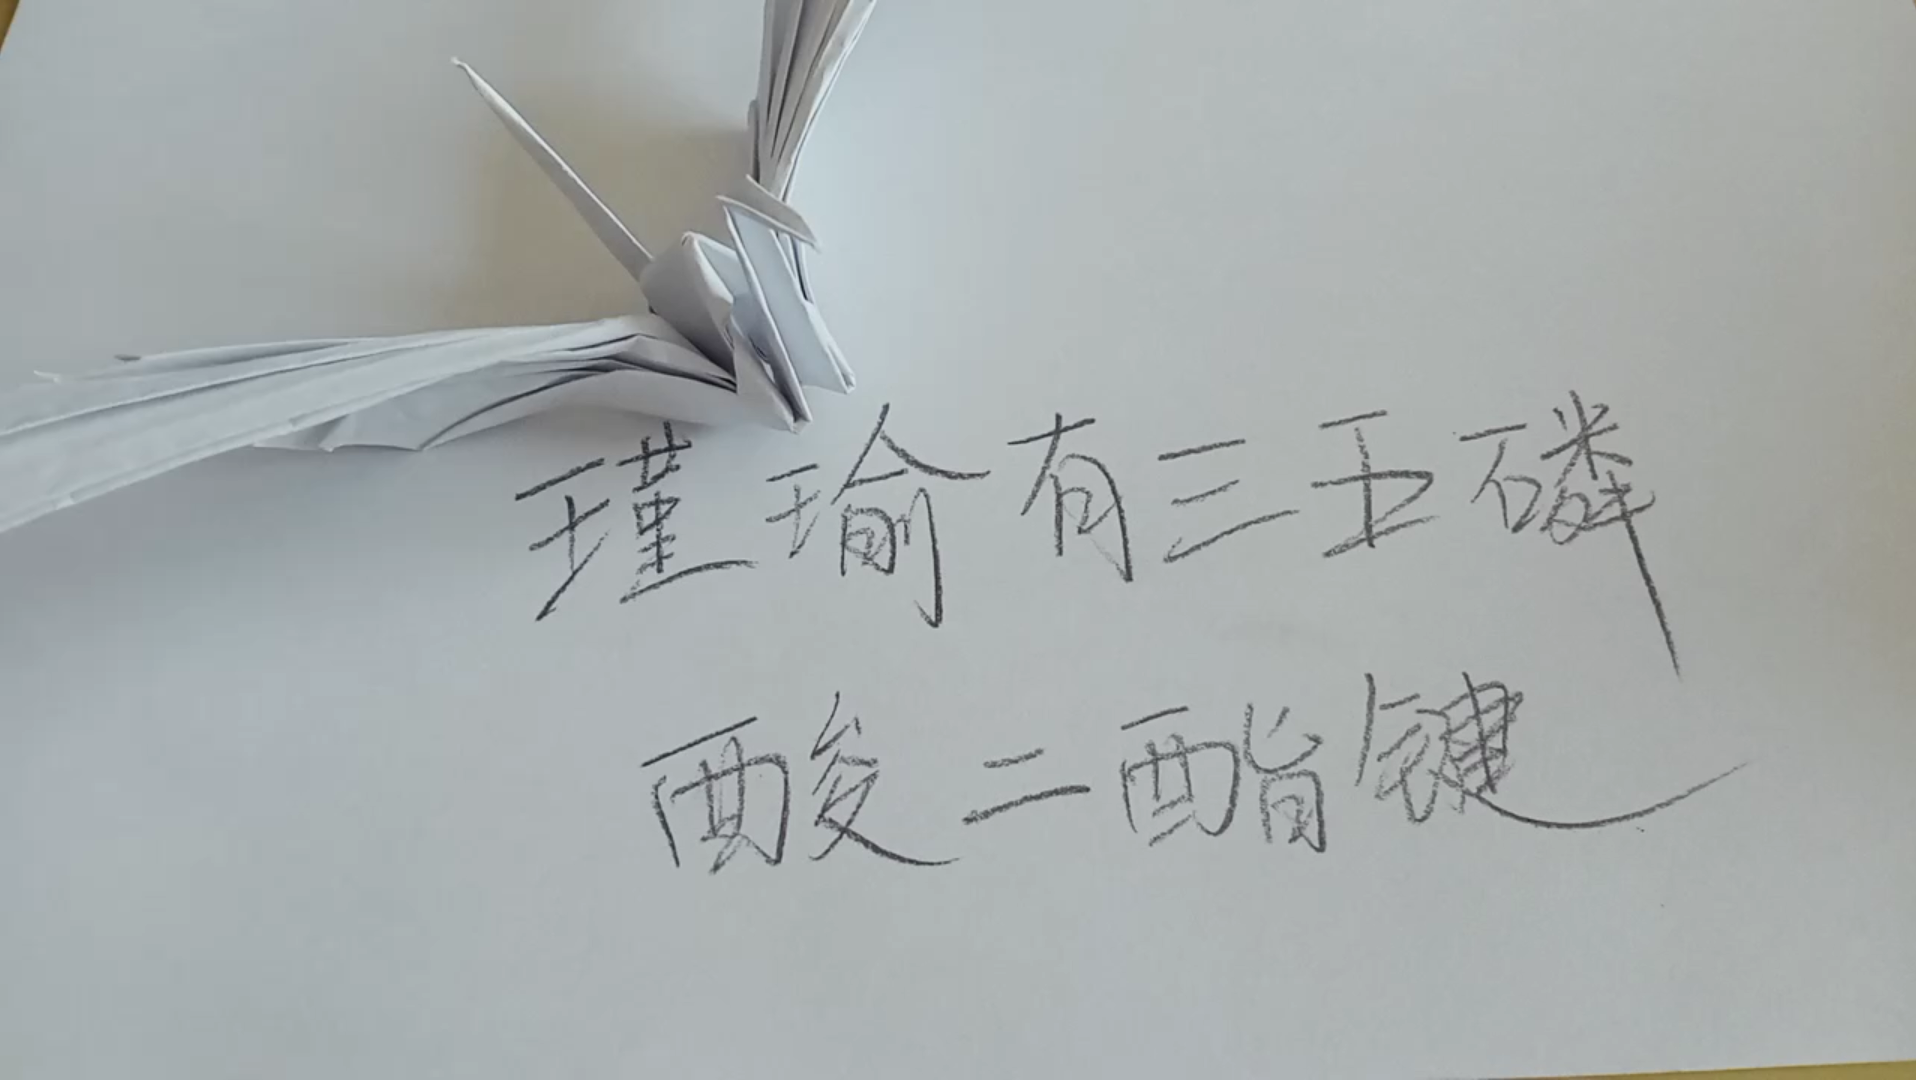 瑾瑜有三王磷
酸二酯键